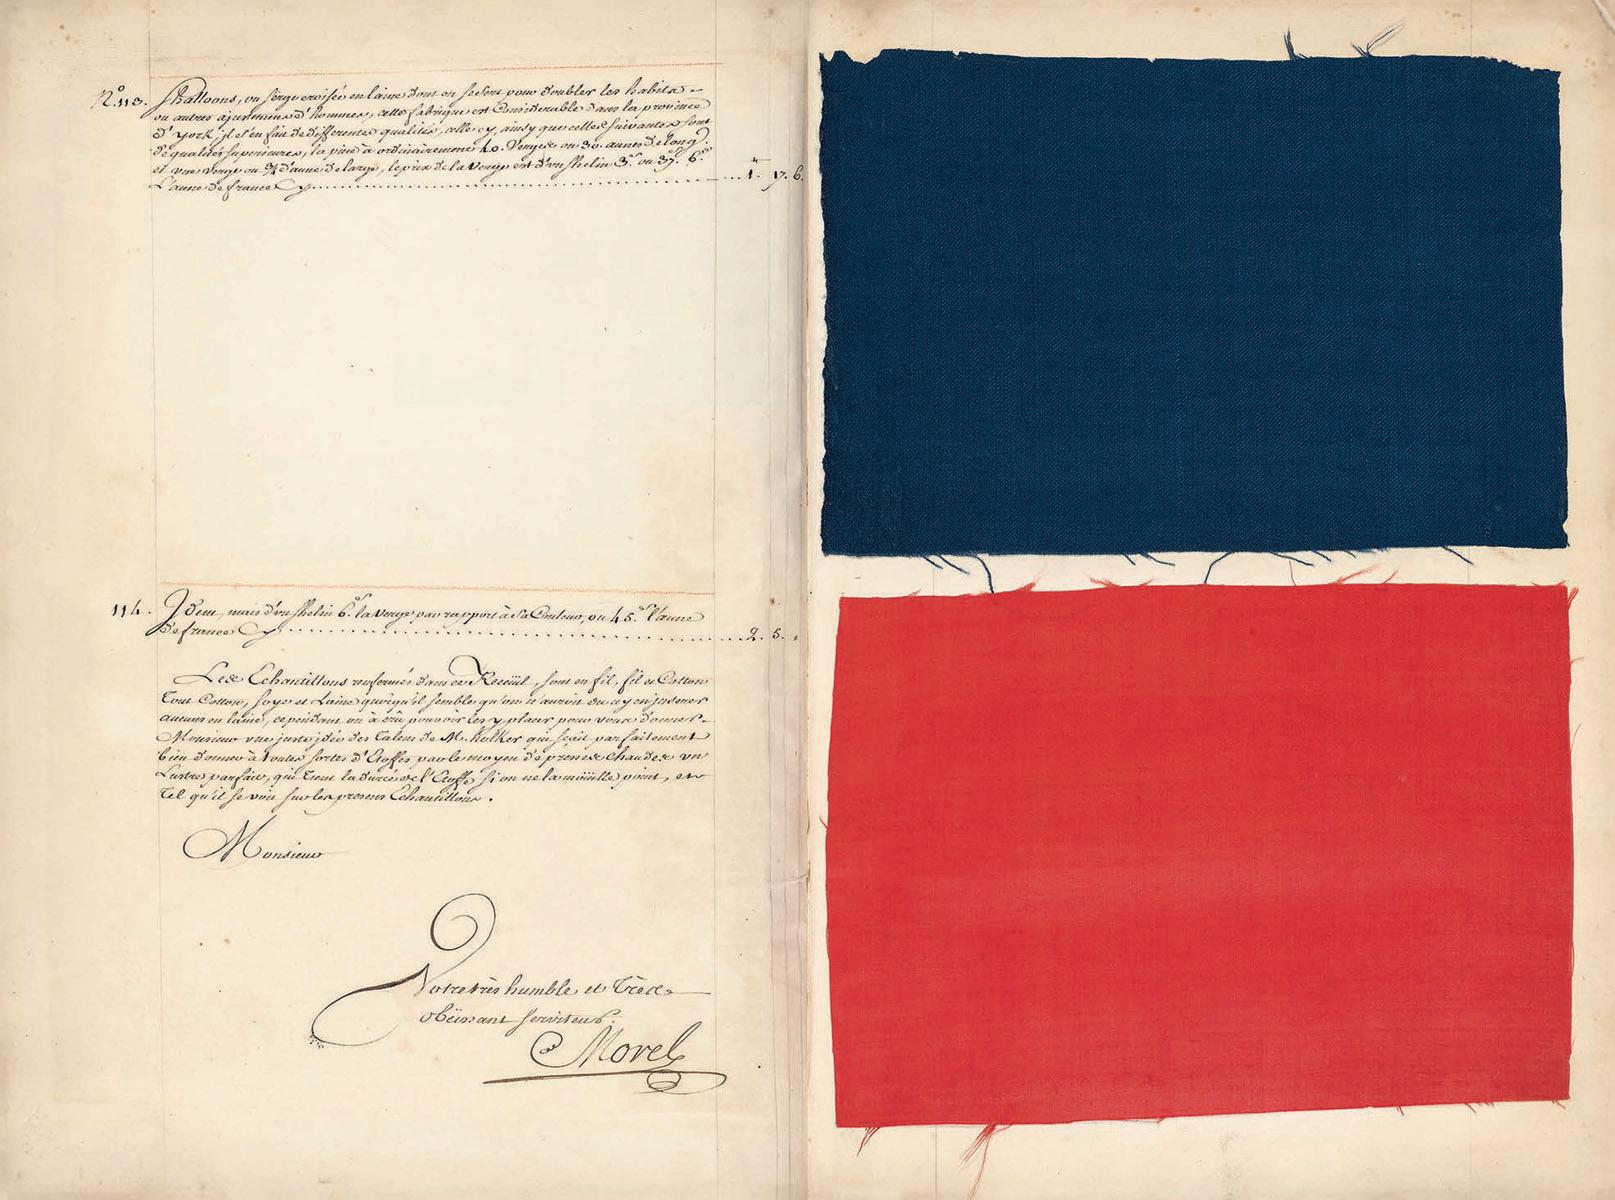 N.º 113. Shalloons, ou Serge croisée en laine dont on se sert pour doubler les habits
ou autres ajustemens d'hommes, cette fabrique est Considerable dans la province
d'york, il s'en fait de differentes qualités, celle cy, ainsy que celles suivantes sont
de qualités superieures, la piece à ordinairement 40. Verges ou 30. aunes de long.
et une Verge ou ¾ d'aune de large, le prix de la Verge est d'un Shelin 3.ˢ ou 37.ˢ 6.ᵈ
L'aune de france Cy ........ 1. 17. 6.
114. Idem, mais d'un Shelin 6.ˢ la Verge par rapport à Sa Couleur, ou 45.ˢ L'aune
de france Cy ........ 2. 5. "
Les Echantillons renfermés dans ce Receüil, sont en fil, fil et Cotton
tout Cotton, soye et Laine quoiqu'il semble qu'on n'auroit du y en inserer
aucuns en laine, cependant on à crû pouvoir les y placer pour vous donner
Monsieur une juste idée des talens de M. holker qui sçait parfaitement
bien donner à toutes sortes d'Etoffes par le moyen de presses Chaudes un
Lustre parfait, qui tient la durée de l'Etoffe si on ne la moüille point, et
tel qu'il se voit sur les presens Echantillons.
Monsieur
Votre très humble et très
obéissant serviteur.
Morel